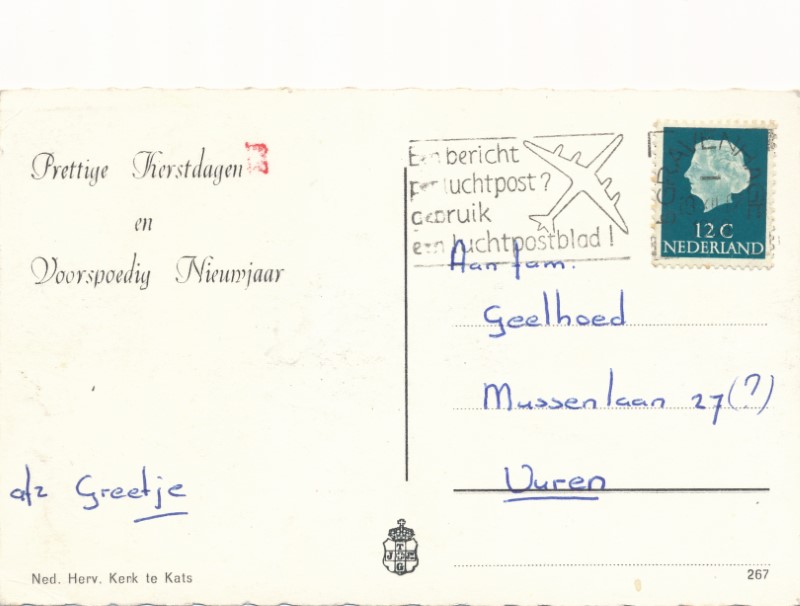 Prettige Kerstdagen
en
Voorspoedig Nieuwjaar
afz Greetje
Ned. Herv. Kerk te Kats
Een bericht
per luchtpost?
gebruik
een luchtpostblad!
12 C
NEDERLAND
Aan fam.
Geelhoed
Mussenlaan 27(?)
Vuren
267